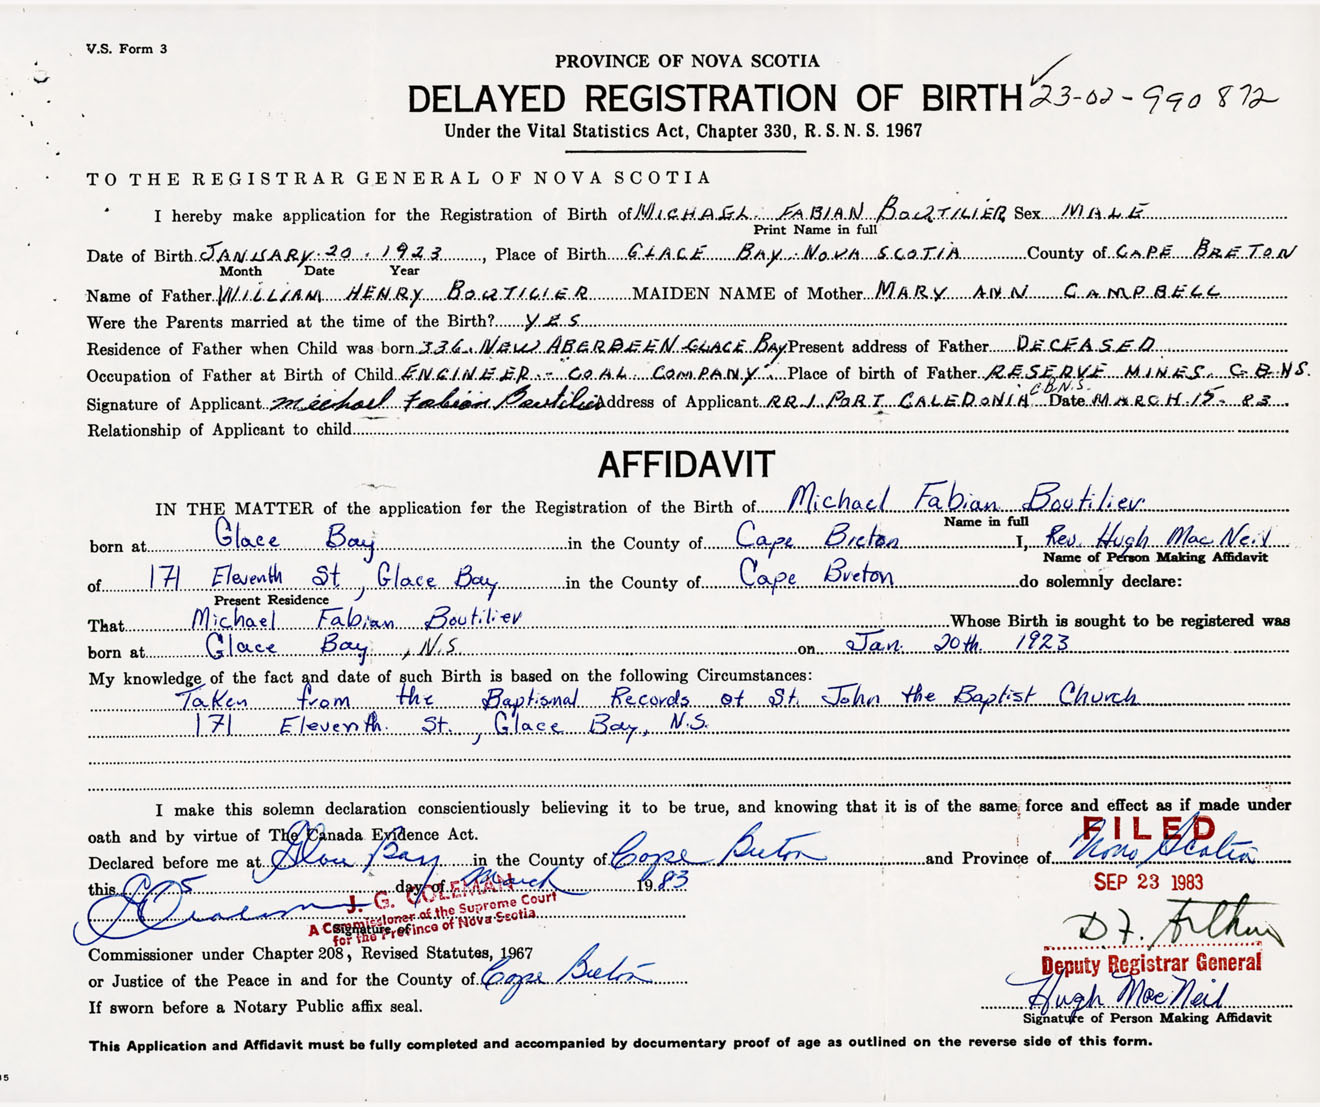 V.S. Form 3
PROVINCE OF NOVA SCOTIA
DELAYED REGISTRATION OF BIRTH ✓23-02-990872
Under the Vital Statistics Act, Chapter 330, R.S.N.S. 1967
TO THE REGISTRAR GENERAL OF NOVA SCOTIA
I hereby make application for the Registration of Birth of MICHAEL FABIAN BOUTILIER Sex MALE
Print Name in full
Date of Birth JANUARY 20, 1923, Place of Birth GLACE BAY NOVA SCOTIA County of CAPE BRETON
Month Date Year
Name of Father WILLIAM HENRY BOUTILIER MAIDEN NAME of Mother MARY ANN CAMPBELL
Were the Parents married at the time of the Birth? YES
Residence of Father when Child was born 336. NEW ABERDEEN GLACE BAY Present address of Father DECEASED
Occupation of Father at Birth of Child ENGINEER - "COAL COMPANY" Place of birth of Father RESERVE MINES. C.B.N.S.
Signature of Applicant Michael Fabian Boutilier Address of Applicant RR1 PORT CALEDONIA C.B.N.S. Date MARCH 15 - 83
Relationship of Applicant to child
AFFIDAVIT
IN THE MATTER of the application for the Registration of the Birth of Michael Fabian Boutilier
Name in full
born at Glace Bay in the County of Cape Breton I, Rev. Hugh Mac Neil
Name of Person Making Affidavit
of 171 Eleventh St, Glace Bay in the County of Cape Breton do solemnly declare:
Present Residence
That Michael Fabian Boutilier Whose Birth is sought to be registered was
born at Glace Bay, N.S on Jan. 20th. 1923
My knowledge of the fact and date of such Birth is based on the following Circumstances:
Taken from the Baptismal Records of St. John the Baptist Church
171 Eleventh St., Glace Bay, N.S.
I make this solemn declaration conscientiously believing it to be true, and knowing that it is of the same force and effect as if made under
oath and by virtue of The Canada Evidence Act.
FILED
Declared before me at Glace Bay in the County of Cape Breton and Province of Nova Scotia
this day of March 1983
SEP 23 1983
J. G. COLEMAN
A Commissioner of the Supreme Court
for the Province of Nova Scotia
Signature of
D F. Arthur
Commissioner under Chapter 208, Revised Statutes, 1967
Deputy Registrar General
or Justice of the Peace in and for the County of Cape Breton
Hugh MacNeil
If sworn before a Notary Public affix seal.
Signature of Person Making Affidavit
This Application and Affidavit must be fully completed and accompanied by documentary proof of age as outlined on the reverse side of this form.